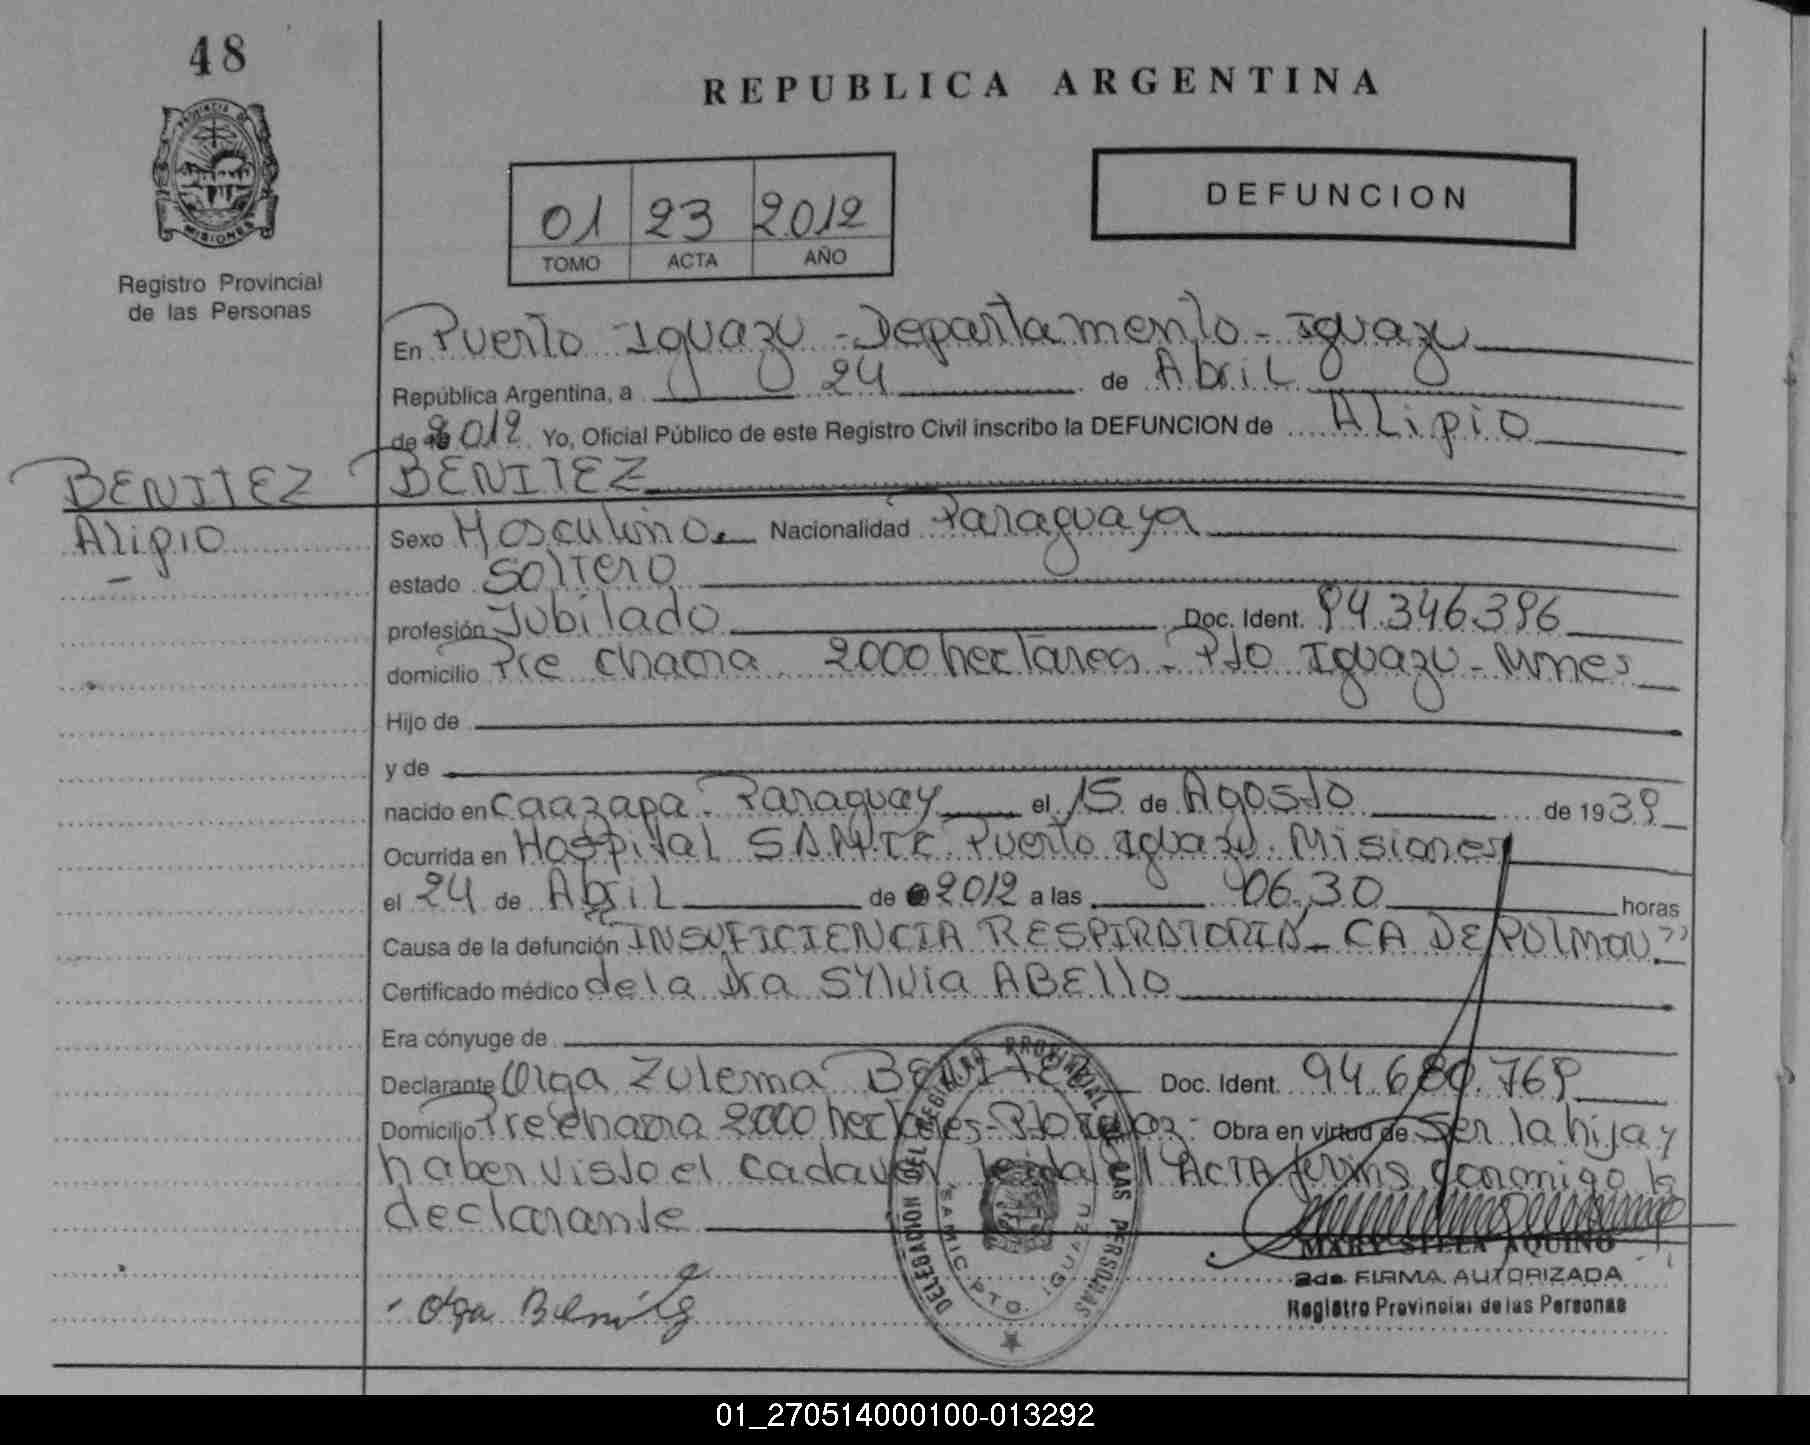 48
PROVINCIA DE
MISIONES
Registro Provincial
de las Personas
REPUBLICA ARGENTINA
01 23 2012
TOMO ACTA AÑO
DEFUNCION
En Puerto Iguazu - Departamento - Iguazu
República Argentina, a 24 de Abril
de 2012 Yo, Oficial Público de este Registro Civil inscribo la DEFUNCION de Alipio
BENITEZ
BENITEZ
Alipio
Sexo Masculino. Nacionalidad Paraguaya
estado Soltero
profesión Jubilado Doc. Ident. 94.346.396
domicilio Pje Chacra 2000 hectareas - Pto Iguazu - Mnes
Hijo de
y de
nacido en Caazapa - Paraguay el 15 de Agosto de 1939
Ocurrida en Hospital SAMIC Puerto Iguazu. Misiones
el 24 de Abril de 2012 a las 06,30 horas
Causa de la defunción INSUFICIENCIA RESPIRATORIA - CA DE PULMON
Certificado médico de la Dra SYlvia ABEllo
Era cónyuge de
Declarante Olga Zulema BENITEZ Doc. Ident. 94.680.769
Domicilio Pre chacra 2000 hectares - Pto Obra en virtud de Ser la hija y
haber visto el cadaver leida el ACTA conmigo la
declarante
Olga Benitez
DELEGACION DEL REGISTRO PROVINCIAL DE LAS PERSONAS
SAMIC. PTO. IGUAZU
MARY STELA AQUINO
2da. FIRMA AUTORIZADA
Registro Provincial de las Personas
01_270514000100-013292